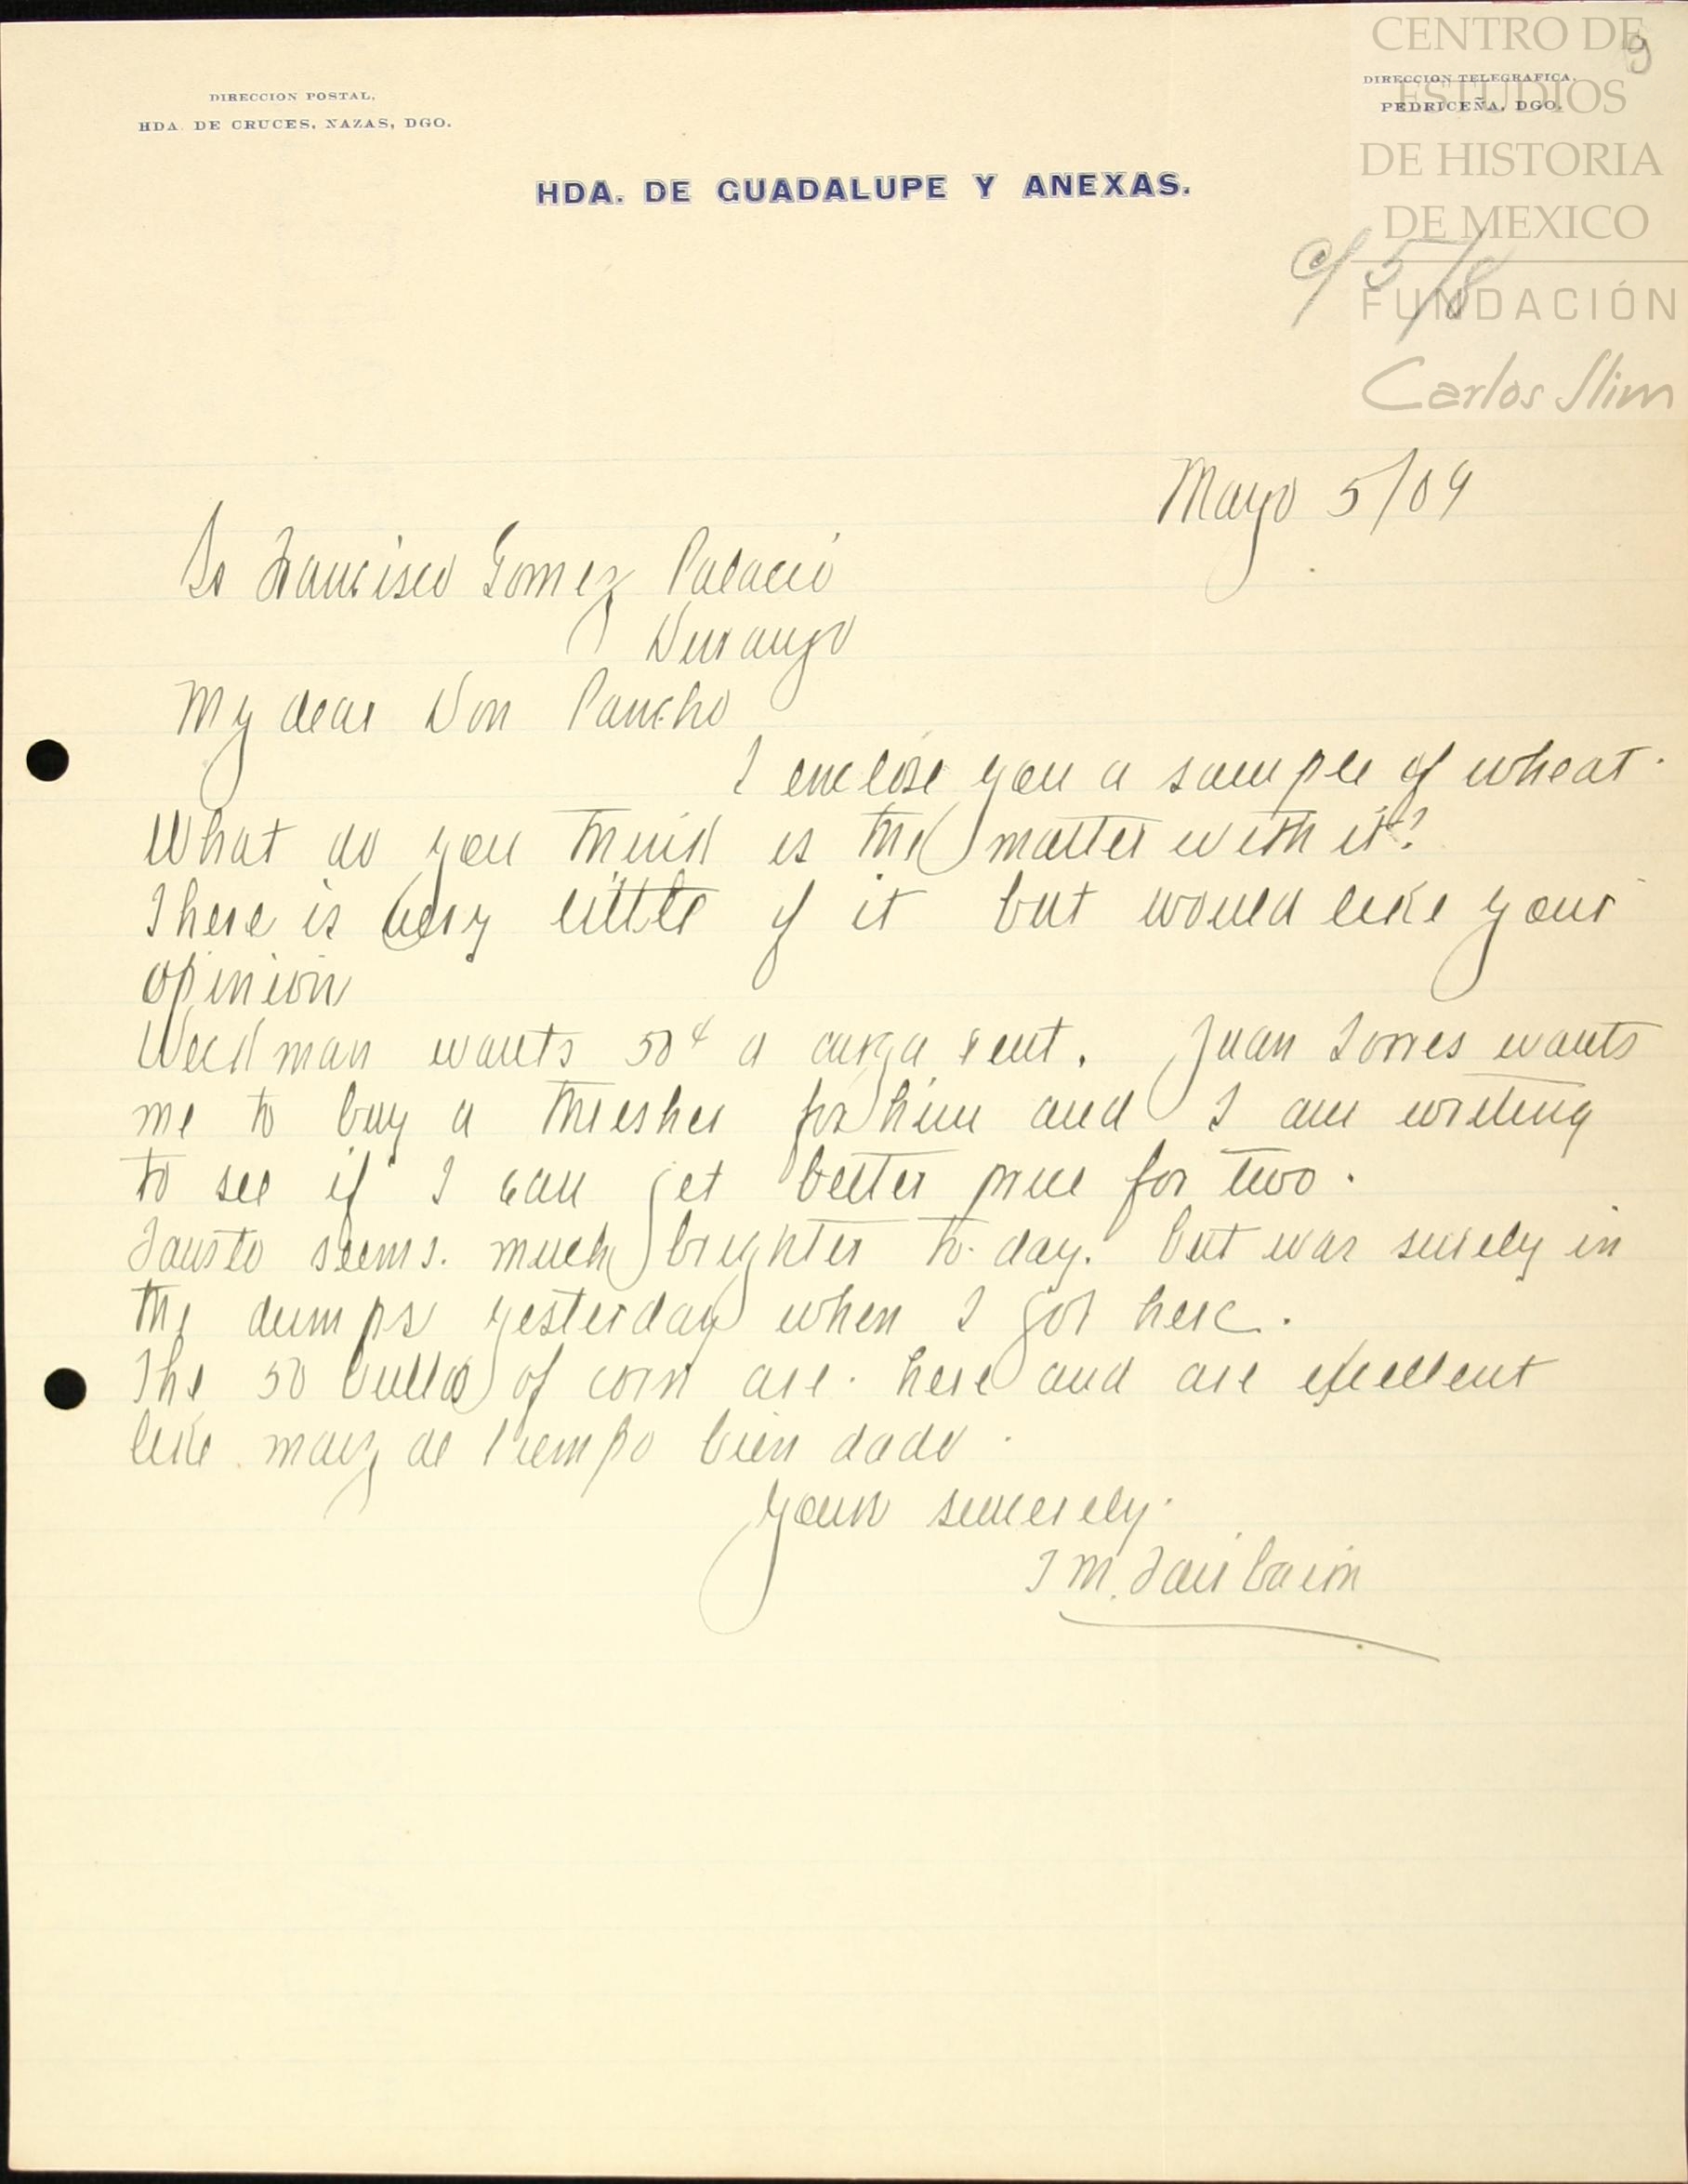 CENTRO DE
ESTUDIOS
DE HISTORIA
DE MEXICO
FUNDACIÓN
Carlos Slim
9
DIRECCION POSTAL,
HDA. DE CRUCES, NAZAS, DGO.
DIRECCION TELEGRAFICA,
PEDRICEÑA, DGO.
HDA. DE GUADALUPE Y ANEXAS.
c/ 5/8
Mayo 5/09
Sr Francisco Gomez Palacio
Durango
My dear Don Pancho
I enclose you a sample of wheat.
What do you think is the matter with it?
There is very little of it but would like your
opinion
Weckman wants 50¢ a carga rent. Juan Torres wants
me to buy a thresher for him and I am writing
to see if I can get better price for two.
Fausto seems. much brighter to-day. but was surely in
the dumps yesterday when I got here.
The 50 bultos of corn are. here and are excellent
like maiz de tiempo bien dado.
Yours sincerely.
J M. Fairbairn